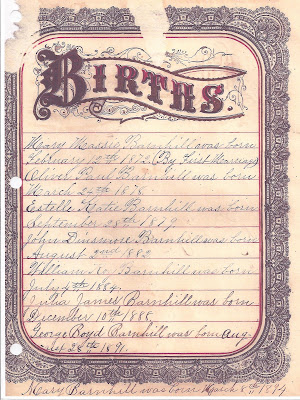 BIRTHS
Mary Massie Barnhill was born
February 12th 1872 (By First Marriage)
Oliver Paul Barnhill was born
March 24th 1878.
Estelle Katie Barnhill was born
September 28th 1879.
John Dinsmore Barnhill was born
August 22nd 1882
William W. Barnhill was born
July 4th 1884.
Julia James Barnhill was born
December 10th 1888
George Boyd Barnhill was born Aug-
ust 28th 1891.
Mary Barnhill was born March 8th 1894